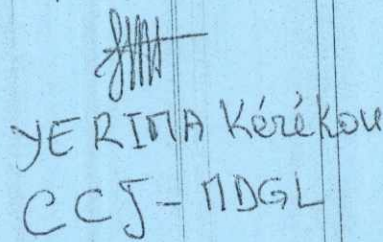 YERIMA Kérékou
CCJ-MDGL